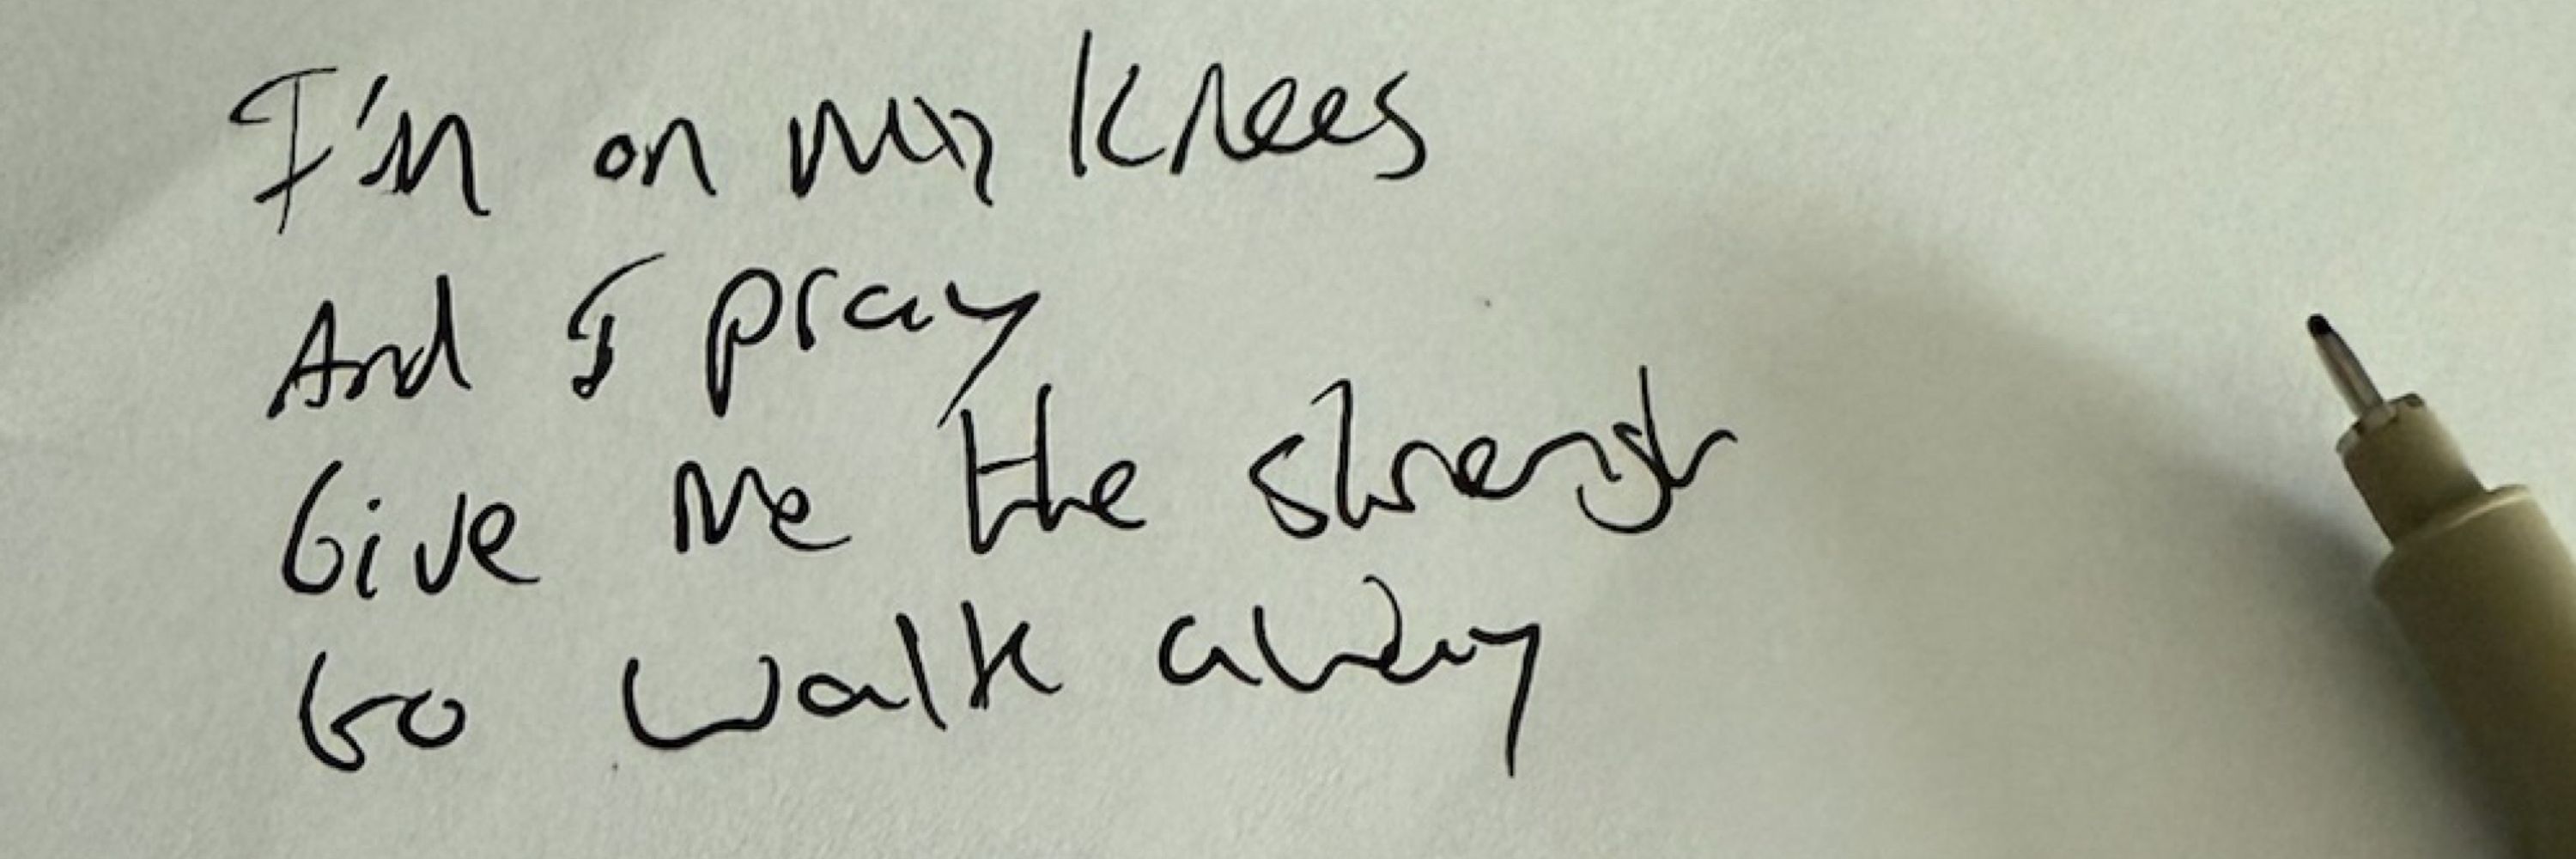 I'm on my knees
And I pray
Give me the strength
to walk away